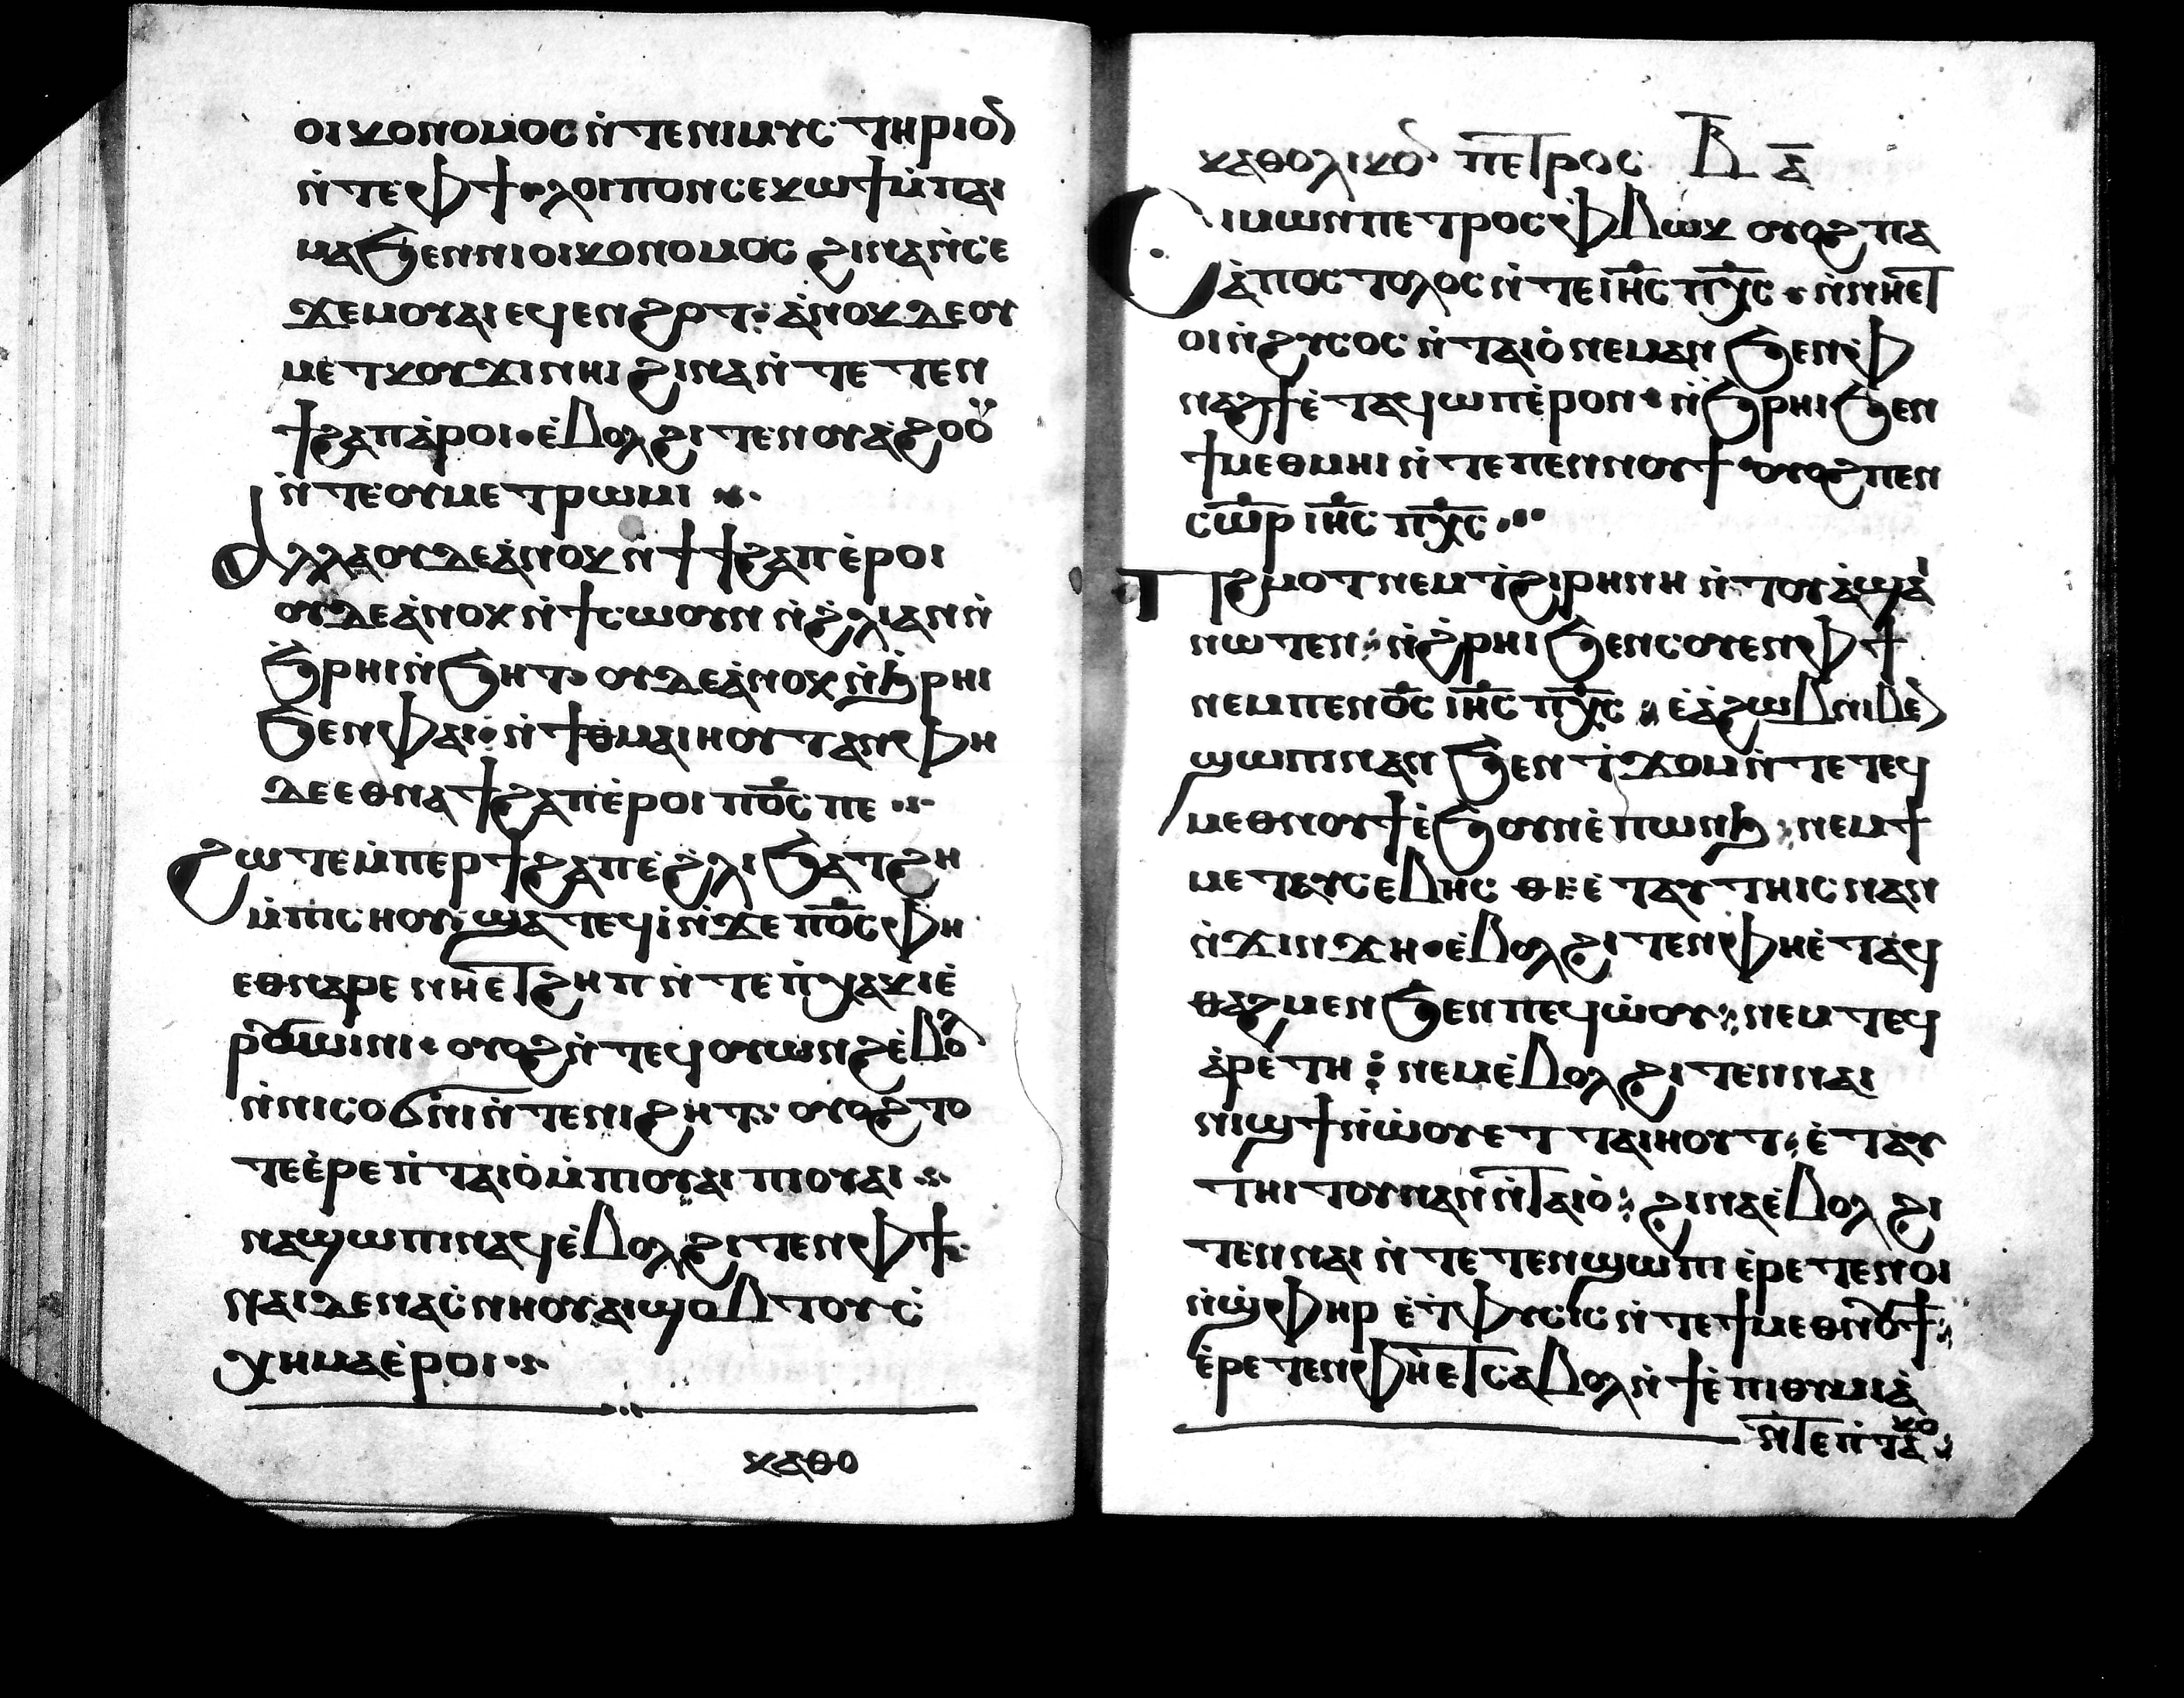 ⲟⲓⲕⲟⲛⲟⲙⲟⲥ ⲛ̀ⲧⲉⲛⲓⲙⲩⲥⲧⲏⲣⲓⲟⲛ
ⲛ̀ⲧⲉⲫϯ · ⲗⲟⲓⲡⲟⲛ ⲥⲉⲕⲱϯ ⲙ̀ⲡⲁⲓ
ⲙⲁ ϧⲉⲛⲛⲓⲟⲓⲕⲟⲛⲟⲙⲟⲥ ϩⲓⲛⲁ ⲛ̀ⲥⲉ
ϫⲉⲙⲟⲩⲁⲓ ⲉϥⲉⲛϩⲟⲧ : ⲁ̀ⲛⲟⲕ ⲇⲉ ⲟⲩ
ⲙⲉⲧⲕⲟⲩϫⲓ ⲛⲏⲓ ϩⲓⲛⲁ ⲛ̀ⲧⲉⲧⲉⲛ
ϯϩⲁⲡ ⲁ̀ⲣⲟⲓ · ⲉ̀ⲃⲟⲗ ϩⲓⲧⲉⲛ ⲟⲩⲁ̀ϩⲟⲟⲩ
ⲛ̀ⲧⲉⲟⲩⲙⲉⲧⲣⲱⲙⲓ ⁘
ⲁⲗⲗⲁ ⲟⲩⲇⲉ ⲁ̀ⲛⲟⲕ ⲛ̀ϯϯϩⲁⲡ ⲉ̀ⲣⲟⲓ
ⲟⲩⲇⲉ ⲁ̀ⲛⲟⲕ ⲛ̀ϯⲥⲱⲟⲩⲛ ⲛ̀ϩ̀ⲗⲓ ⲁⲛ ⲛ̀
ϧ̀ⲣⲏⲓ ⲛ̀ϧⲏⲧ : ⲟⲩⲇⲉ ⲁ̀ⲛⲟⲕ ⲛ̀ϧ̀ⲣⲏⲓ
ϧⲉⲛⲫⲁⲓ : ⲛ̀ϯⲑⲙⲁⲓⲏⲟⲩⲧ ⲁⲛ ⲫⲏ
ⲇⲉ ⲉⲑⲛⲁϯϩⲁⲡ ⲉ̀ⲣⲟⲓ ⲡ⳪ ⲡⲉ ⁘
ϩⲱⲧⲉ ⲙ̀ⲡⲉⲣϯϩⲁⲡ ⲉ̀ϩ̀ⲗⲓ ϧⲁⲧϩⲏ
ⲙ̀ⲡⲓⲥⲏⲟⲩ : ϣⲁⲧⲉϥⲓ̀ ⲛ̀ϫⲉ ⲡ⳪ ⲫⲏ
ⲉⲑⲛⲁⲣⲉ ⲛⲏⲉⲧϩⲏⲡ ⲛ̀ⲧⲉ ⲡ̀ⲭⲁⲕⲓ ⲉ̀
ⲣⲟⲩⲱⲓⲛⲓ · ⲟⲩⲟϩ ⲛ̀ⲧⲉϥⲟⲩⲱⲛϩ ⲉ̀ⲃⲟⲗ
ⲛ̀ⲛⲓⲥⲟϭⲛⲓ ⲛ̀ⲧⲉⲛⲓϩⲏⲧ : ⲟⲩⲟϩ ⲧⲟ
ⲧⲉ ⲉ̀ⲣⲉ ⲡ̀ⲧⲁⲓⲟ̀ ⲙ̀ⲡⲓⲟⲩⲁⲓ ⲡⲓⲟⲩⲁⲓ ⁘
ⲛⲁϣⲱⲡⲓ ⲛⲁϥ ⲉ̀ⲃⲟⲗ ϩⲓⲧⲉⲛ ⲫϯ :
ⲛⲁⲓ ⲇⲉ ⲛⲁⲥ̀ⲛⲏⲟⲩ ⲁⲓϣⲟⲃⲧⲟⲩ ⲥ̀
ⲭⲏⲙⲁ ⲉ̀ⲣⲟⲓ ⁘
ⲕⲁⲑⲟ
ⲕⲁⲑⲟⲗⲓⲕⲟⲛ ⲡⲉⲧⲣⲟⲥ ⲃ̅ ⲁ̅
Ⲥⲓⲙⲱⲛ ⲡⲉⲧⲣⲟⲥ ⲫ̀ⲃⲱⲕ ⲟⲩⲟϩ ⲡⲁ
ⲁ̀ⲡⲟⲥⲧⲟⲗⲟⲥ ⲛ̀ⲧⲉ ⲓⲏ̅ⲥ̅ ⲡⲭ̅ⲥ̅ · ⲛ̀ⲛⲏⲉⲧ
ⲟⲓ ⲛ̀ϩⲩⲥⲟⲥ ⲛ̀ⲧⲁⲓⲟ̀ ⲛⲉⲙⲁⲛ ϧⲉⲛⲫ
ⲛⲁϩϯ ⲉ̀ⲧⲁϥϣⲱⲡⲉ̀ⲣⲟⲛ · ⲛ̀ϧ̀ⲣⲏⲓ ϧⲉⲛ
ϯⲙⲉⲑⲙⲏⲓ ⲛ̀ⲧⲉ ⲡⲉⲛⲛⲟⲩϯ · ⲟⲩⲟϩ ⲡⲉⲛ
ⲥⲱ̅ⲣ̅ ⲓⲏ̅ⲥ̅ ⲡⲭ̅ⲥ̅ ⁘
Ⲡϩⲙⲟⲧ ⲛⲉⲙ ⲧ̀ϩⲓⲣⲏⲛⲏ ⲛ̀ⲧⲟⲩⲁ̀ϣⲁⲓ
ⲛⲱⲧⲉⲛ : ⲛ̀ϩ̀ⲣⲏⲓ ϧⲉⲛⲥⲟⲩⲉⲛⲫϯ
ⲛⲉⲙ ⲡⲉⲛ⳪ ⲓⲏ̅ⲥ̅ ⲡⲭ̅ⲥ̅ : ⲉ̀ⲁ̀ϩⲱⲃ ⲛⲓⲃⲉⲛ
ϣⲱⲡⲓ ⲛⲁⲛ ϧⲉⲛ ⲧ̀ϫⲟⲙ ⲛ̀ⲧⲉ ⲧⲉϥ
ⲙⲉⲑⲛⲟⲩϯ ⲉ̀ϧⲟⲩⲛ ⲉ̀ⲡⲱⲛϧ : ⲛⲉⲙ ϯ
ⲙⲉⲧⲉⲩⲥⲉⲃⲏⲥ ⲑⲏ ⲉ̀ⲧⲁⲩⲧⲏⲓⲥ ⲛⲁⲛ
ⲛ̀ϫⲓⲛϫⲏ · ⲉ̀ⲃⲟⲗ ϩⲓⲧⲉⲛ ⲫⲏ ⲉ̀ⲧⲁϥ
ⲑⲁϩⲙⲉⲛ ϧⲉⲛ ⲡⲉϥⲱ̀ⲟⲩ : ⲛⲉⲙ ⲧⲉϥ
ⲁ̀ⲣⲉ̀ⲧⲏ : ⲛⲉⲙ ⲉ̀ⲃⲟⲗ ϩⲓⲧⲉⲛ ⲛⲁⲓ
ⲛⲓϣϯ ⲛ̀ⲱ̀ⲟⲩ ⲉⲧⲧⲁⲓⲏⲟⲩⲧ : ⲉ̀ⲧⲁⲩ
ⲧⲏⲓⲧⲟⲩ ⲛⲁⲛ ⲛ̀ⲧⲁⲓⲟ̀ : ϩⲓⲛⲁ ⲉ̀ⲃⲟⲗ ϩⲓ
ⲧⲉⲛ ⲛⲁⲓ ⲛ̀ⲧⲉⲧⲉⲛϣⲱⲡⲓ ⲉ̀ⲣⲉⲧⲉⲛⲟⲓ
ⲛ̀ϣ̀ⲫⲏⲣ ⲉ̀ⲧ̀ⲫⲩⲥⲓⲥ ⲛ̀ⲧⲉ ϯⲙⲉⲑⲛⲟⲩϯ :
ⲉ̀ⲣⲉⲧⲉⲛⲫⲏⲉⲧ ⲥⲁⲃⲟⲗ ⲛ̀ϯⲉ̀ⲡⲓⲑⲩⲙⲓⲁ̀
ⲛ̀ⲧⲉ ⲡ̀ⲧⲁⲕⲟ